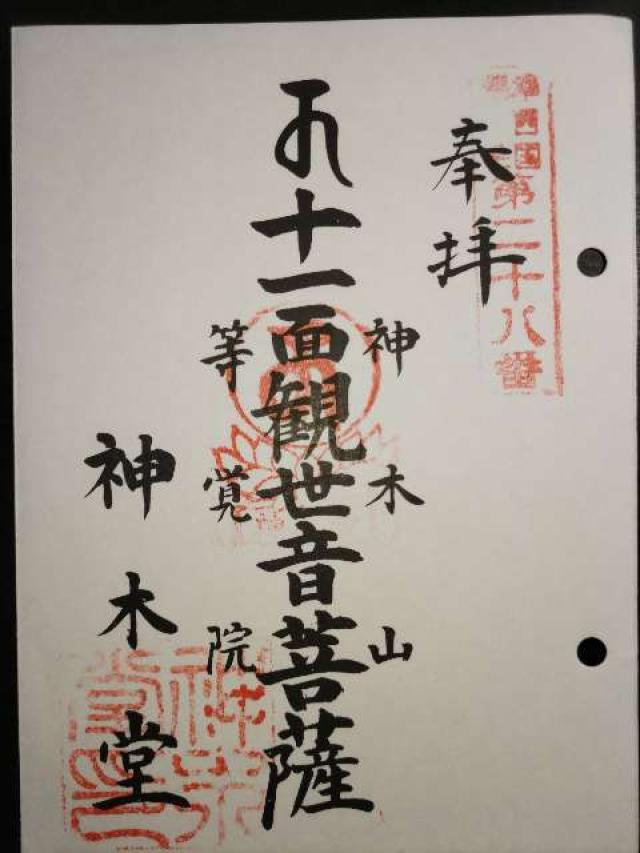 第二十八番
奉拝
十一面観世音菩薩
神木山
等覚院
神木堂